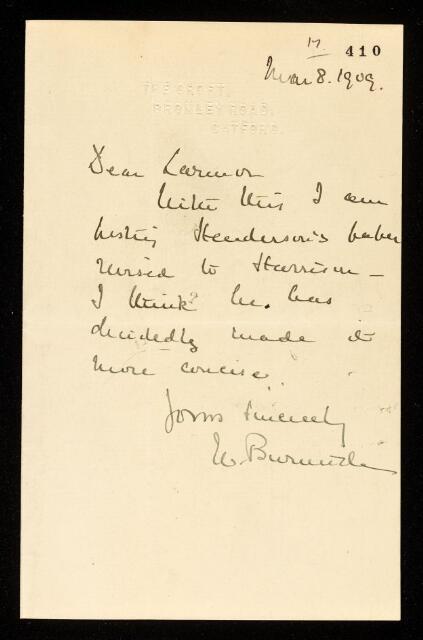 17. 410
Mar 8. 1909.
THE CROFT,
BROMLEY ROAD,
CATFORD.
Dear Larmor
With this I am
posting Henderson's paper
revised to Harrison —
I think he has
decidedly made it
more concise.
Yours sincerely
W. Burnside